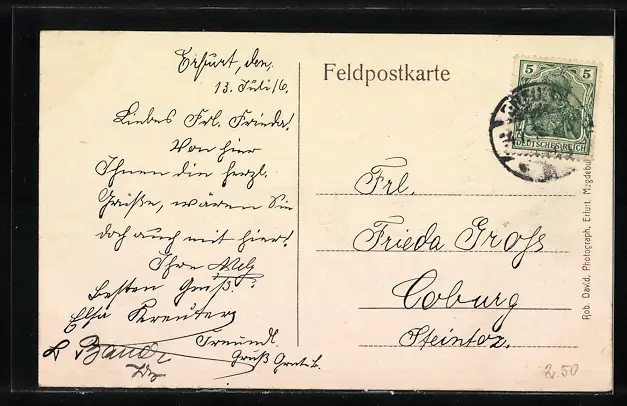 Erfurt, den
13. Juli 16.
Liebes Frl. Frieda!
Von hier
Ihnen die herzl.
Grüße, wären Sie
doch auch mit hier!
Ihre
besten Gruß
Elsa Kreuter
Freundl.
Gruß
Feldpostkarte
5 5
DEUTSCHES REICH
Frl.
Frieda Gross
Coburg
Steintor.
Rob. David, Photograph, Erfurt, Magdebu
2.50